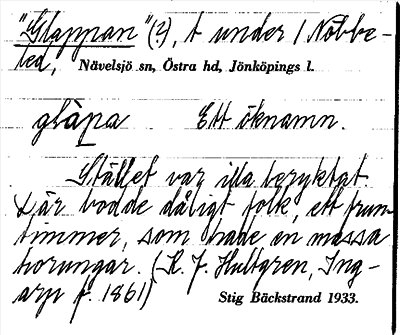 "Glappan" (?), t under 1 Nöbbe-
led, Nävelsjö sn, Östra hd, Jönköpings l.
glåpa Ett öknamn.
Stället var illa beryktat.
Där bodde dåligt folk, ett frun-
timmer, som hade en massa
horungar. (K. J. Hultgren, Ing-
arp f. 1861) Stig Bäckstrand 1933.